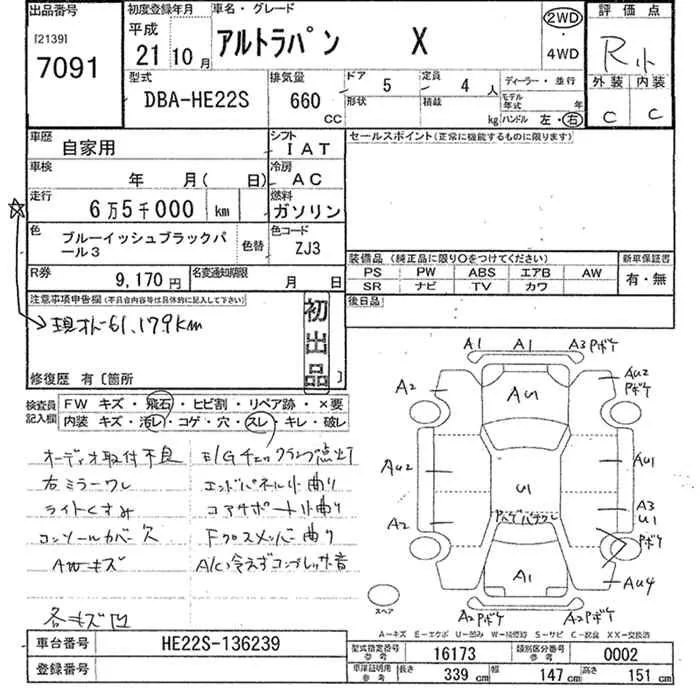 出品番号 初度登録年月 車名・グレード 評価点
[2139] 平成
7091 21年 10月 アルトラパン X 2WD・4WD R
型式 排気量 ドア 5 定員 4人 ディーラー・並行 外装 内装
DBA-HE22S 660 CC 形状 積載 kg モデル年式 年 ハンドル 左・右 C C
車歴 自家用 シフト IAT セールスポイント(正常に機能するものに限ります)
車検 年 月( 日) 冷房 AC
走行 6万5千000 km 燃料 ガソリン
色 ブルーイッシュブラックパール3 色替 色コード ZJ3
装備品(純正品に限り○をつけてください) 新車保証書
PS PW ABS エアB AW 有・無
SR ナビ TV カワ
R券 9,170円 名変通知期限 月 日
後日品
注意事項申告欄(不具合内容等は具体的に記入して下さい)
現オド61,179km
初出品
修復歴 有〔箇所 〕
検査員記入欄
FW キズ・飛石・ヒビ割・リペア跡・×要
内装 キズ・汚レ・コゲ・穴・スレ・キレ・破レ
オーディオ取付不良 E/Gチェックランプ点灯
右ミラーワレ エンドパネル小曲り
ライトくすみ コアサポート小曲り
コンソールカバー欠 Fクロスメンバー曲り
AWキズ A/C冷えずコンプレッサ音
各キズ凹
A1 A1 A3 Pボケ
A2 AU1 AU2 Pボケ
AU2 U1 AU1
A2 A3 U1
Pボケ
A1 AU4
スペア A2 Pボケ A2 Pボケ
A-キズ E-エクボ U-凹み W-補修跡 S-サビ C-腐食 XX-交換済
車台番号 HE22S-136239
登録番号
型式指定番号 参考 16173 類別区分番号 参考 0002
車庫証明用 参考 長さ 339cm 幅 147cm 高さ 151cm